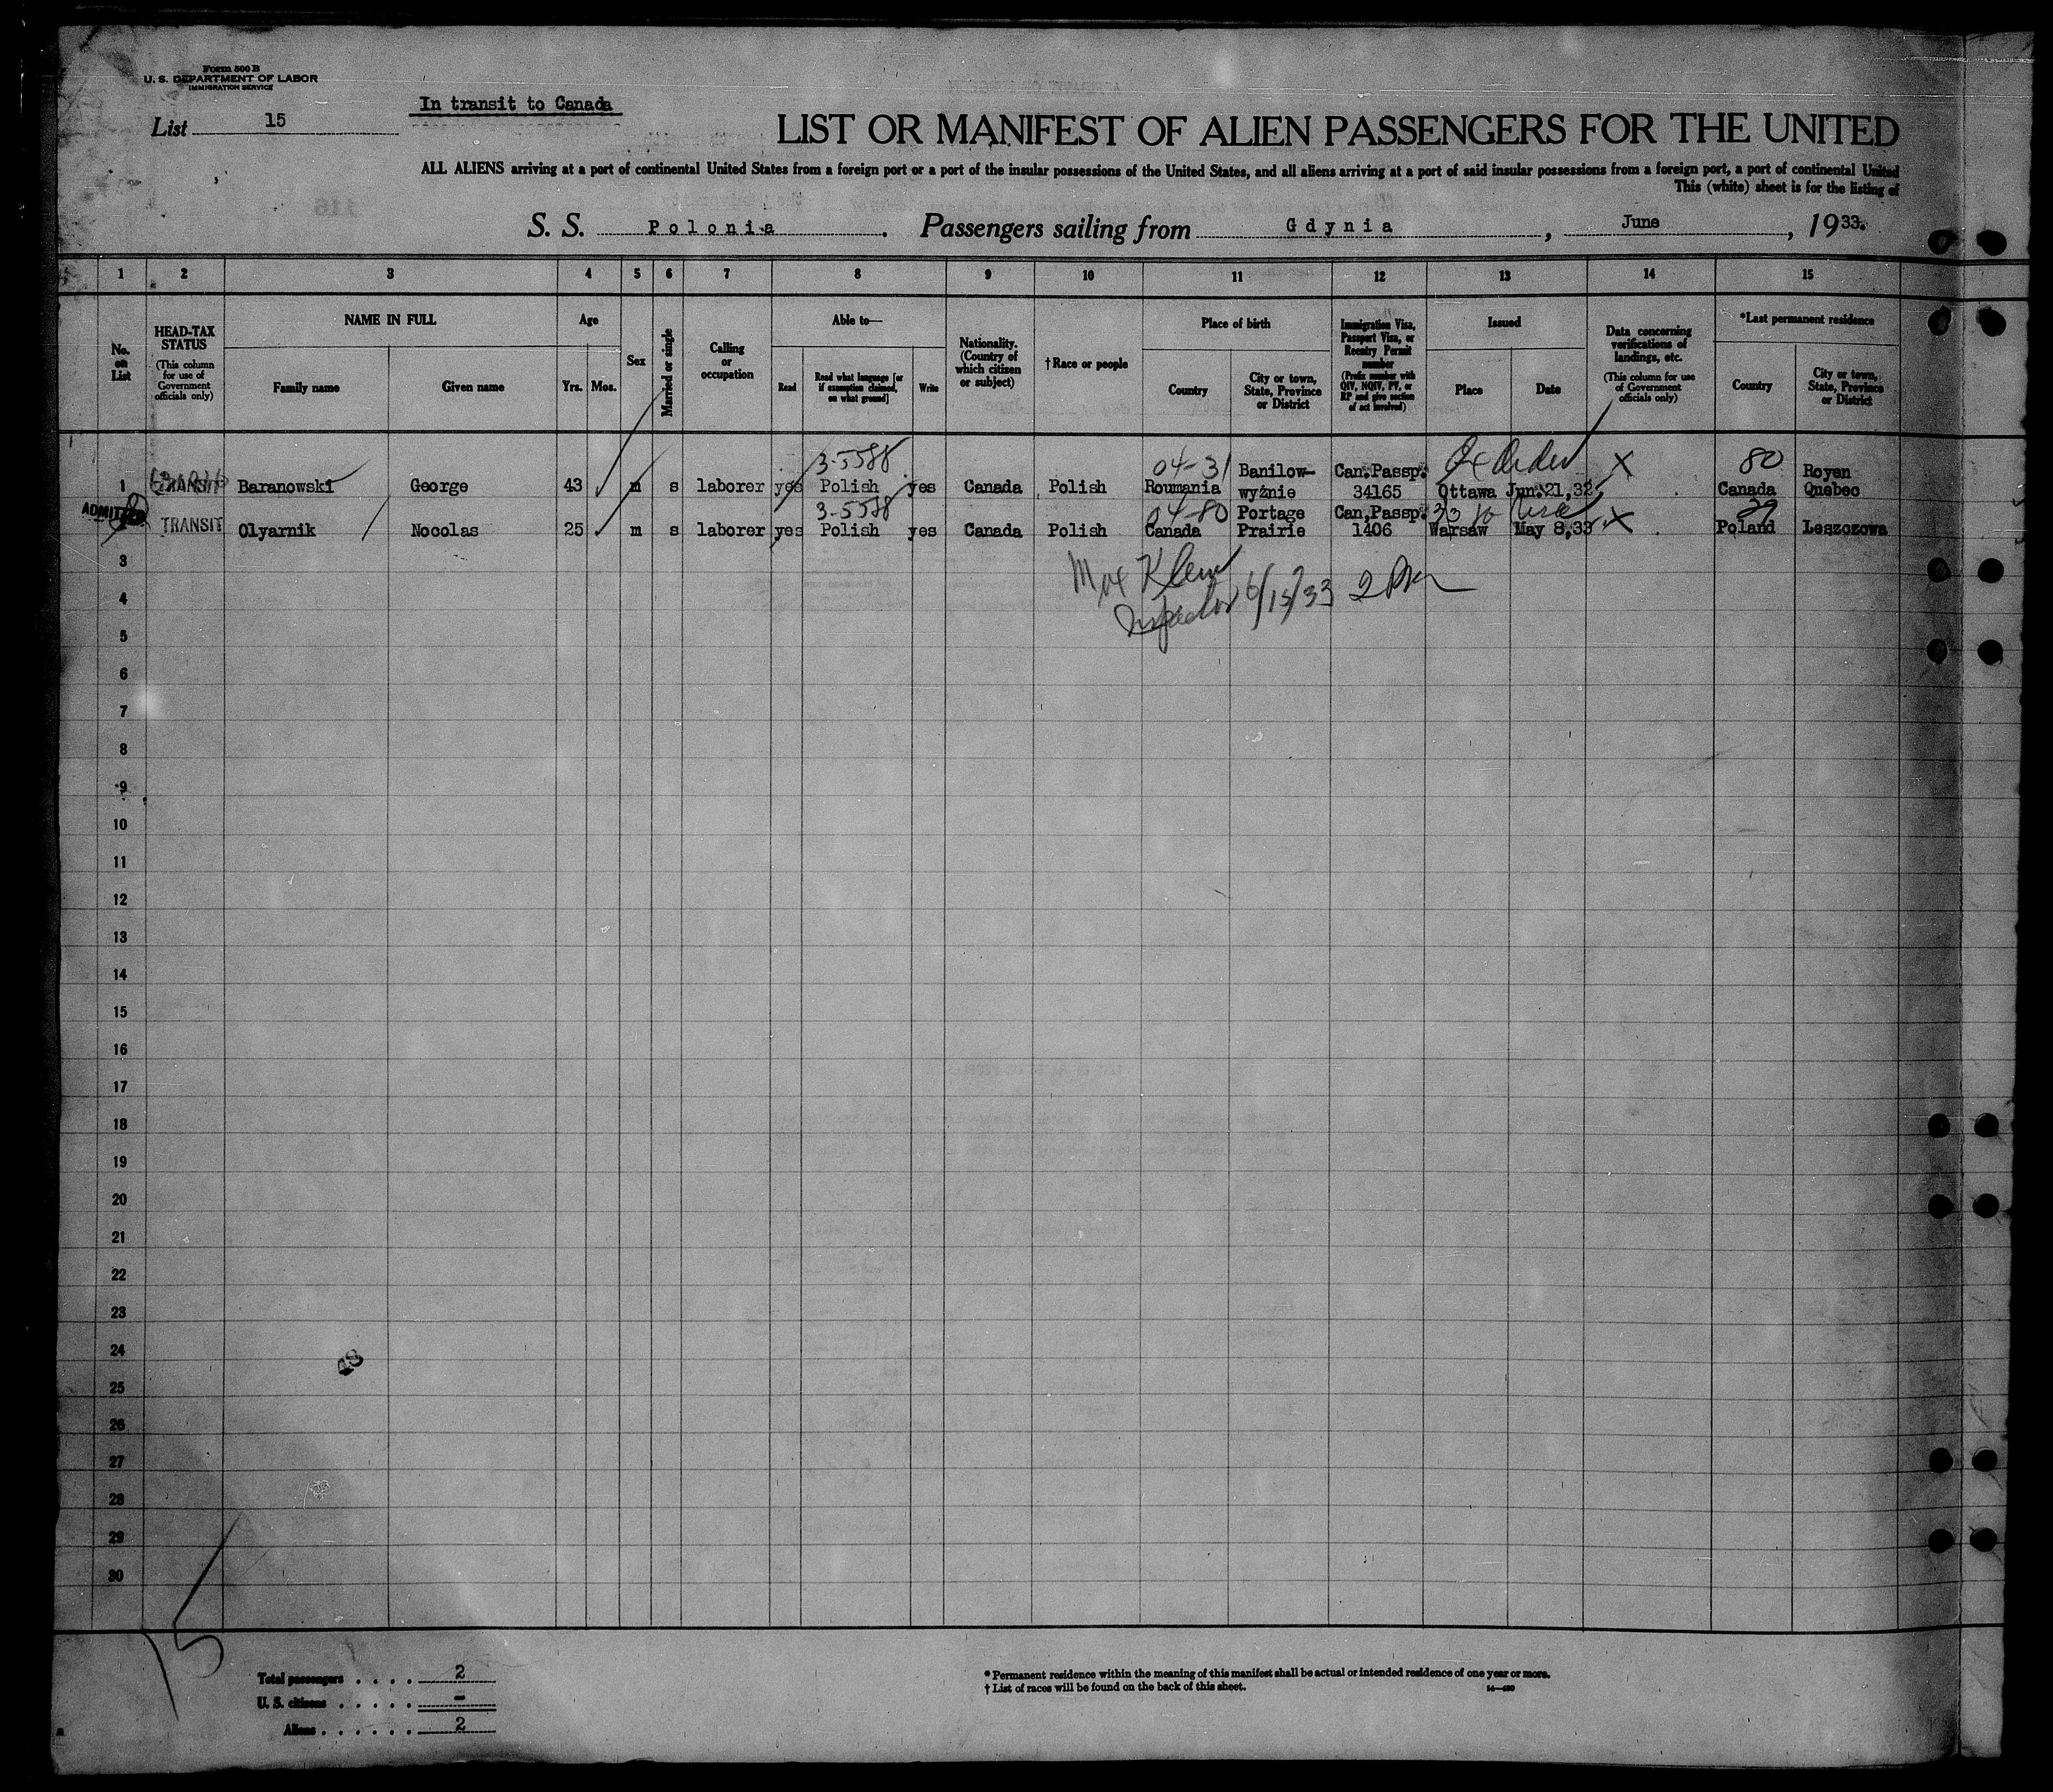 Form 500 B
U. S. DEPARTMENT OF LABOR
IMMIGRATION SERVICE
In transit to Canada
List 15
LIST OR MANIFEST OF ALIEN PASSENGERS FOR THE UNITED
ALL ALIENS arriving at a port of continental United States from a foreign port or a port of the insular possessions of the United States, and all aliens arriving at a port of said insular possessions from a foreign port, a port of continental United
This (white) sheet is for the listing of
S. S. Polonia. Passengers sailing from Gdynia, June, 1933.
1 2 3 4 5 6 7 8 9 10 11 12 13 14 15
No. on List
HEAD-TAX STATUS (This column for use of Government officials only)
NAME IN FULL
Family name Given name
Age
Yrs. Mos.
Sex
Married or single
Calling or occupation
Able to—
Read Read what language [or if exemption claimed, on what ground] Write
Nationality. (Country of which citizen or subject)
† Race or people
Place of birth
Country City or town, State, Province or District
Immigration Visa, Passport Visa, or Reentry Permit number (Prefix number with QIV, NQIV, PV, or RP and give section of act involved)
Issued
Place Date
Data concerning verifications of landings, etc. (This column for use of Government officials only)
*Last permanent residence
Country City or town, State, Province or District
3-5588 04-31 Ex Order X 80
1 TRANSIT Baranowski George 43 m s laborer yes Polish yes Canada Polish Roumania Banilow-wyżnie Can.Passp. 34165 Ottawa Jun.21,32 Canada Royen Quebec
ADMITTED
3-5588 04-80 X 39
TRANSIT Olyarnik Nocolas 25 m s laborer yes Polish yes Canada Polish Canada Portage Prairie Can,Passp. 1406 Warsaw May 8,33 Poland Leszczowa
3
Max Klein
4
Inspector 6/15/33
5
6
7
8
9
10
11
12
13
14
15
16
17
18
19
20
21
22
23
24
25
26
27
28
29
30
15
Total passengers . . . . 2
U. S. citizens . . . . . -
Aliens . . . . . . 2
* Permanent residence within the meaning of this manifest shall be actual or intended residence of one year or more.
† List of races will be found on the back of this sheet.